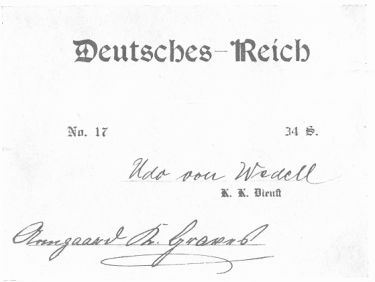 Deutsches-Reich
No. 17 34 S.
Udo von Wedell
K. K. Dienst
Armgaard K. Graves